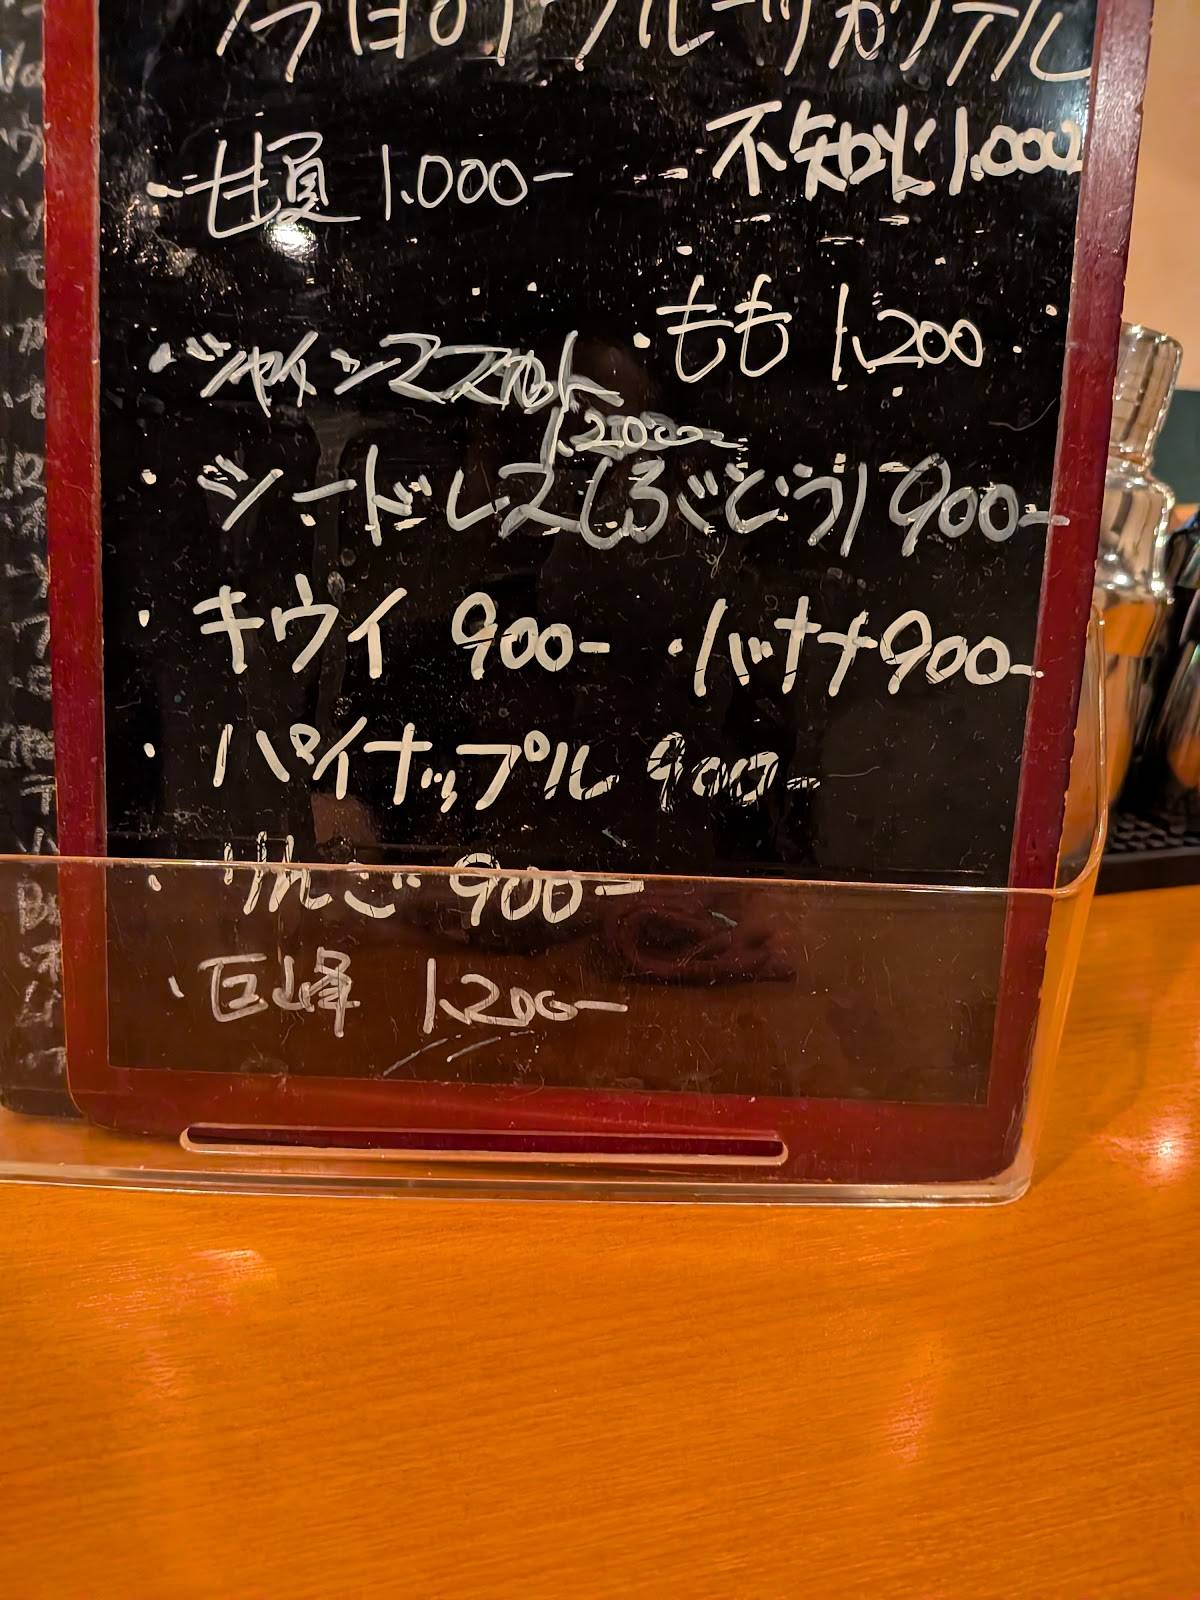 今日のフルーツカクテル
・甘夏 1.000-
・不知火 1.000
・もも 1.200
・シャインマスカット
1.200-
・シードレスしろぶどう 900-
・キウイ 900- ・バナナ 900-
・パイナップル 900-
・りんご 900-
・巨峰 1.200-